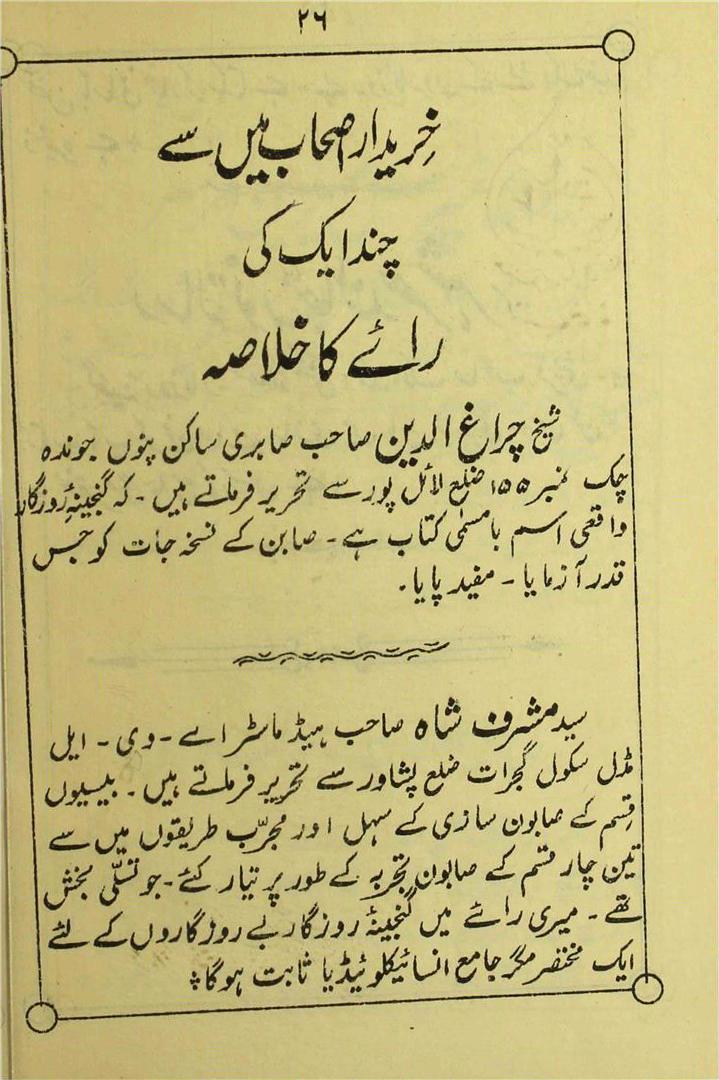 ۲۶
خریدار اصحاب میں سے
چند ایک کی
رائے کا خلاصہ
شیخ چراغ الدین صاحب صابری ساکن پنوں جوندہ
چک نمبر ۱۵۵ ضلع لائل پور سے تحریر فرماتے ہیں۔ کہ گنجینۂ روزگار
واقعی اسم بامسمٰی کتاب ہے۔ صابن کے نسخہ جات کو جس
قدر آزمایا۔ مفید پایا۔
سید مشرف شاہ صاحب ہیڈ ماسٹر اے۔ وی۔ ایل
مڈل سکول گجرات ضلع پشاور سے تحریر فرماتے ہیں۔ بیسیوں
قسم کے صابون سازی کے سہل اور مجرّب طریقوں میں سے
تین چار قسم کے صابون تجربہ کے طور پر تیار کئے۔ جو تسلّی بخش
تھے۔ میری رائے میں گنجینۂ روزگار بے روزگاروں کے لئے
ایک مختصر مگر جامع انسائیکلوئیڈیا ثابت ہوگا ؞